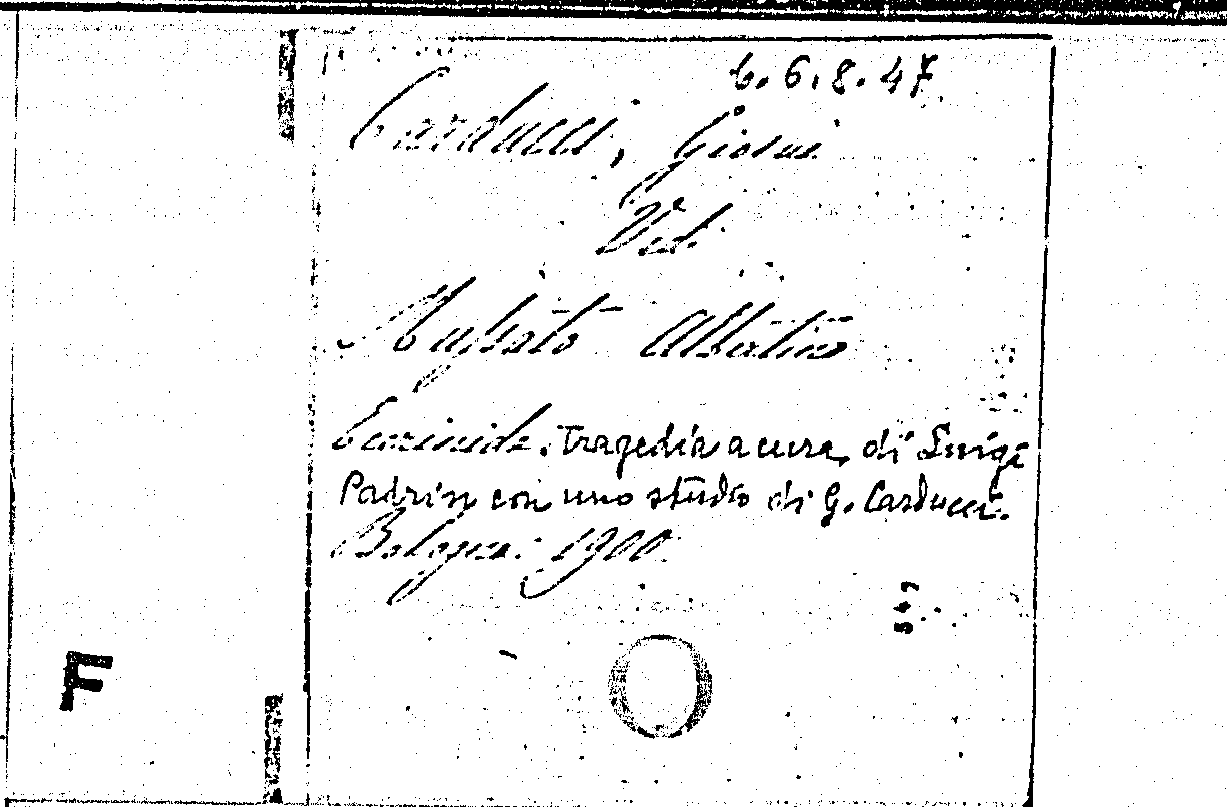 6.6.8.47
Carducci, Giosuè
Vedi
Mussato Albertino
Ecerinide. Tragedia a cura di Luigi
Padrin con uno studio di G. Carducci.
Bologna. 1900.
F